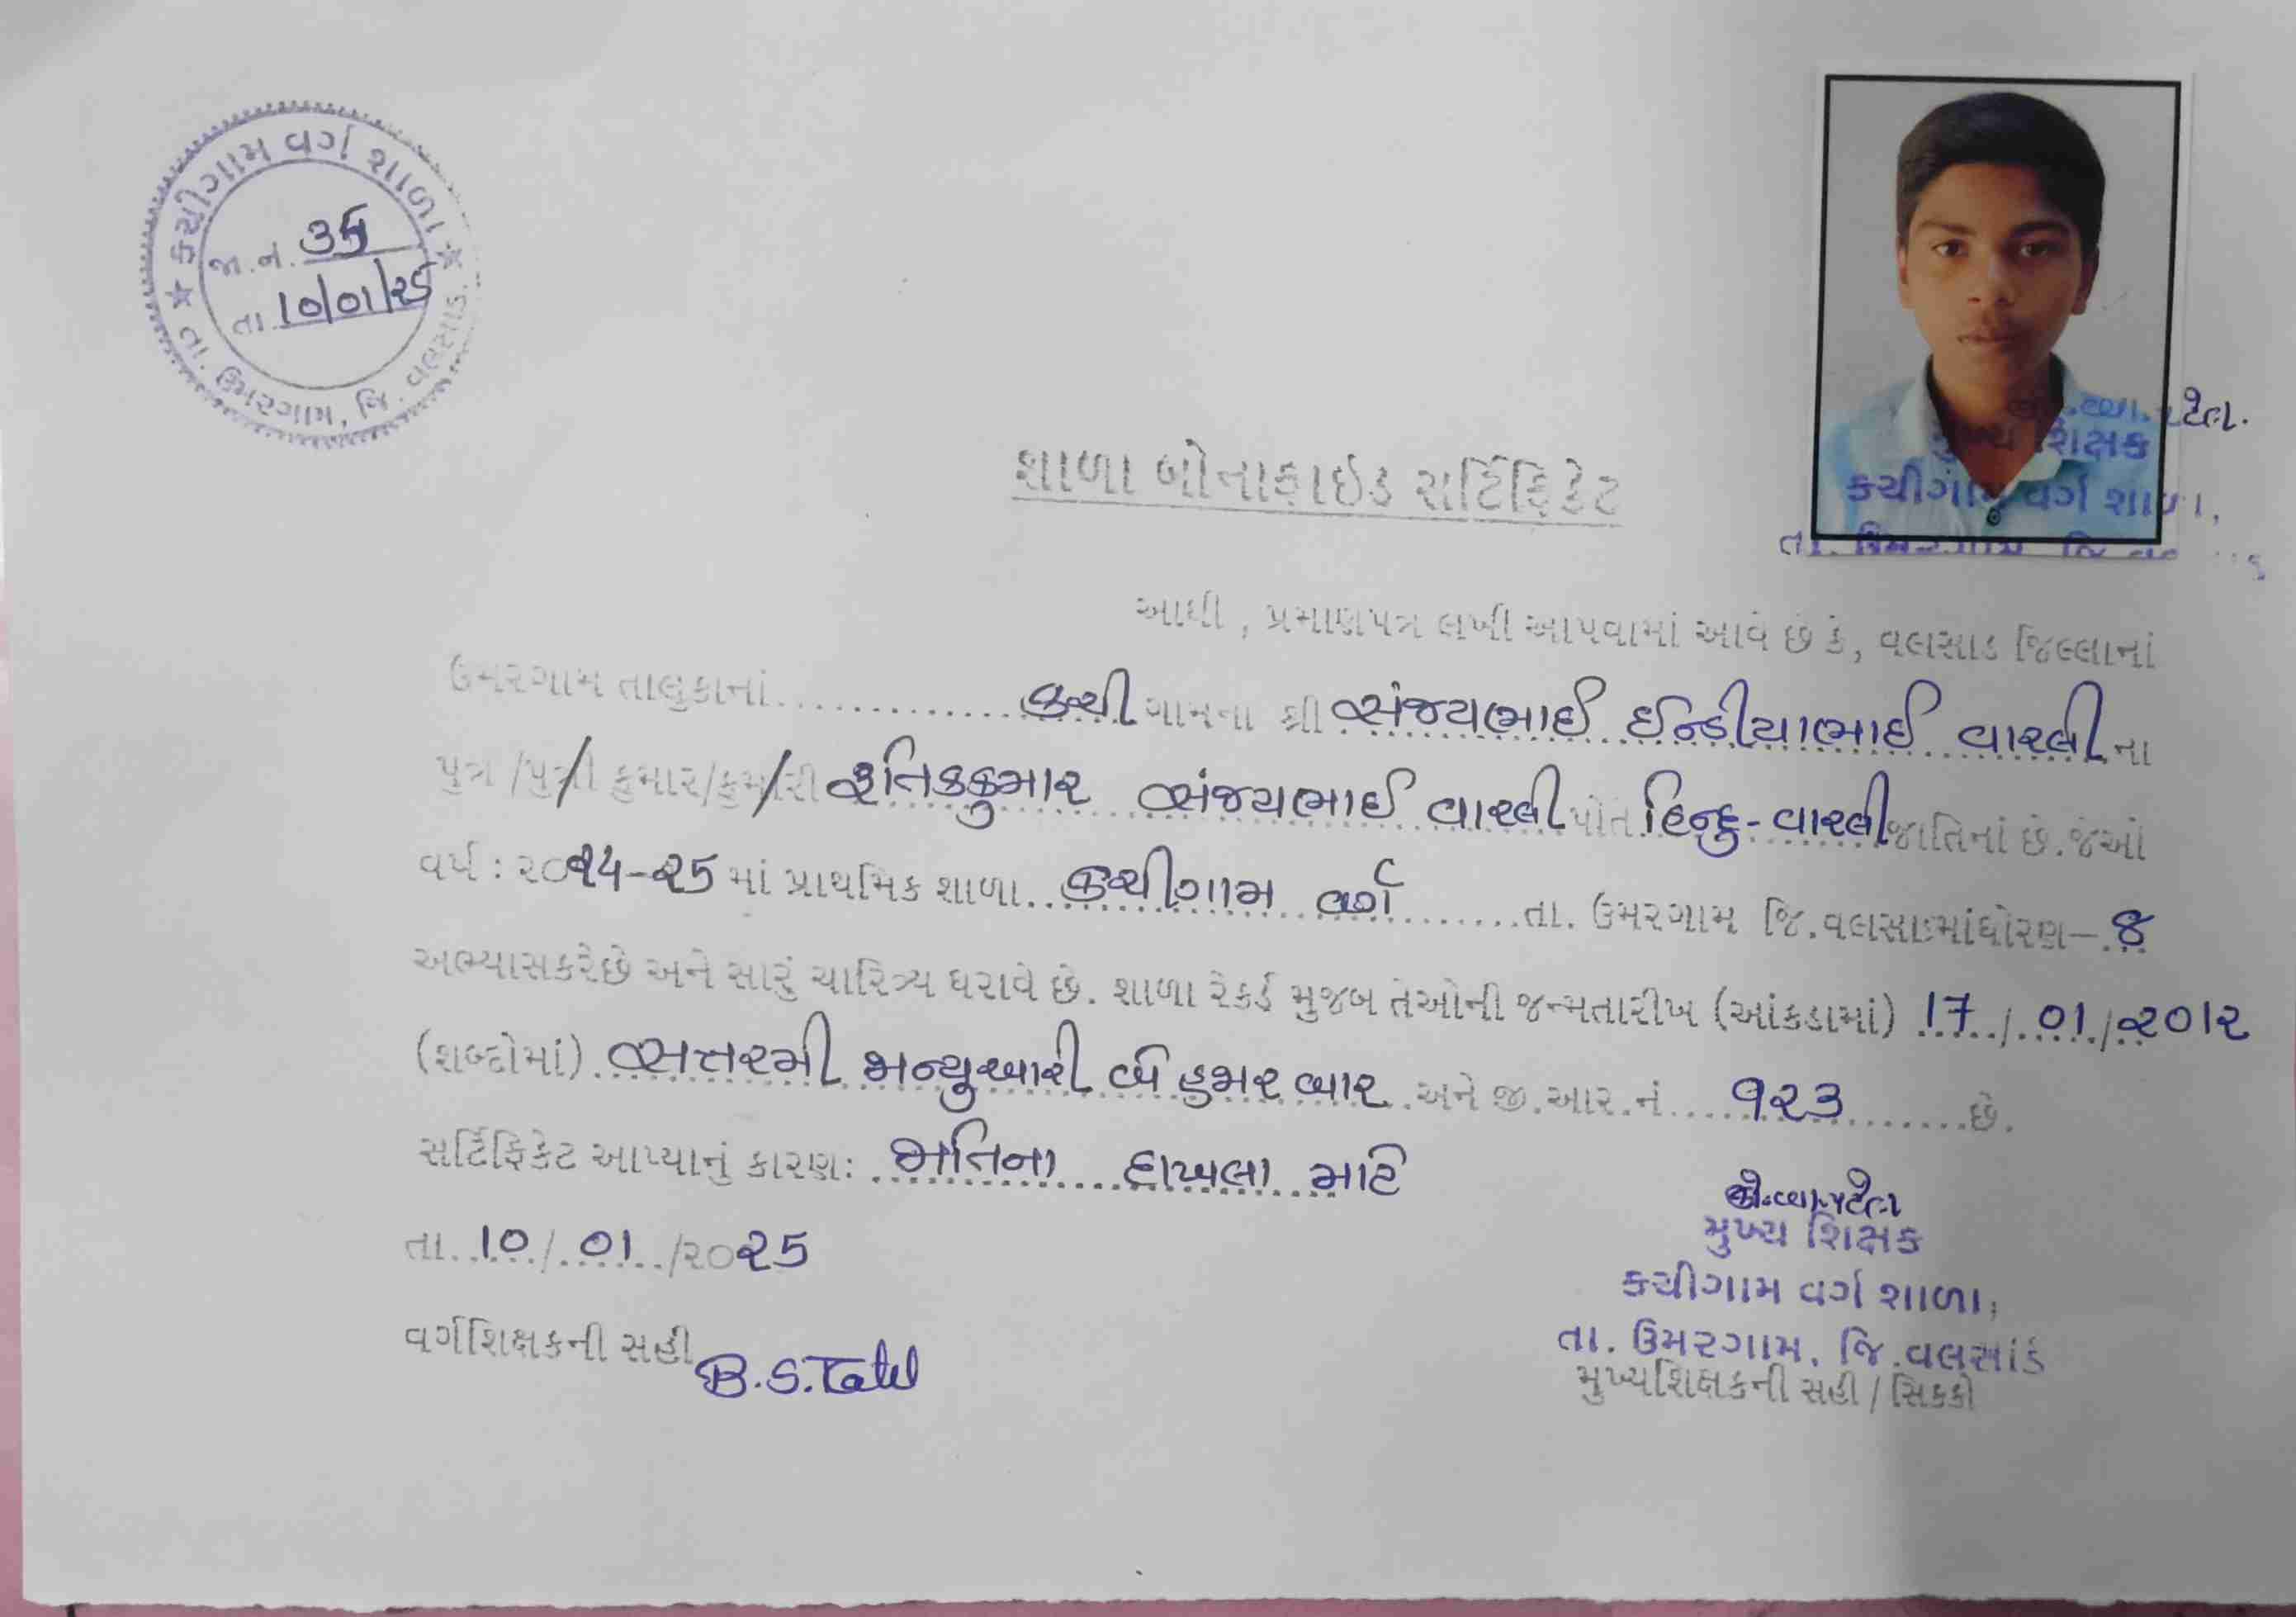 કચીગામ વર્ગ શાળા
જા.નં. 35
તા. 10/01/25
તા. ઉમરગામ, જિ. વલસાડ.
પટેલ.
મુખ્ય શિક્ષક
કચીગામ વર્ગ શાળા,
તા. ઉમરગામ, જિ.વલસાડ
શાળા બોનાફાઇડ સર્ટિફિકેટ
આથી , પ્રમાણપત્ર લખી આપવામાં આવે છે કે, વલસાડ જિલ્લાનાં
ઉમરગામ તાલુકાનાં.............કચી ગામના શ્રી સંજયભાઈ ઈન્ડીયાભાઈ વારલી ના
પુત્ર /પુત્રી કુમાર/કુમારી રુતિકકુમાર સંજયભાઈ વારલી પોતે હિન્દુ-વારલી જાતિનાં છે.જેઓ
વર્ષ : ૨૦૨4-૨5 માં પ્રાથમિક શાળા...કચીગામ વર્ગ.......તા. ઉમરગામ જિ.વલસાડમાંધોરણ–.૭
અભ્યાસકરેછે અને સારું ચારિત્ર્ય ધરાવે છે. શાળા રેકર્ડ મુજબ તેઓની જન્મતારીખ (આંકડામાં) 17/01/૨૦1૨
(શબ્દોમાં) સત્તરમી જાન્યુઆરી બે હજાર બાર અને જી.આર.નં....૧૨૩.......છે.
સર્ટિફિકેટ આપ્યાનું કારણ: જાતિના દાખલા માટે
તા. 10/01/૨૦૨5
વર્ગશિક્ષકની સહી B.S.Patel
પટેલ
મુખ્ય શિક્ષક
કચીગામ વર્ગ શાળા,
તા. ઉમરગામ, જિ.વલસાડ
મુખ્યશિક્ષકની સહી / સિકકો